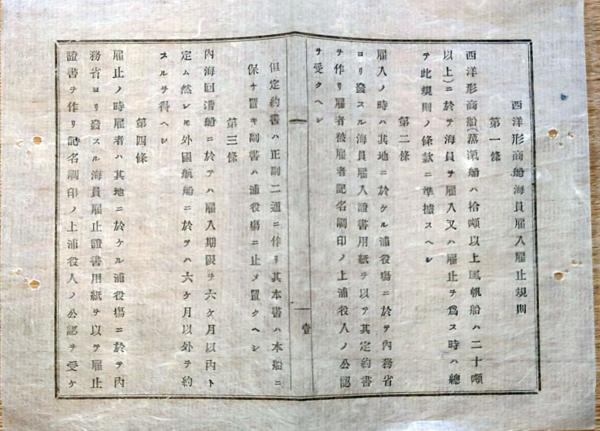 西洋形商船海員雇入雇止規則
第一條
西洋形商船(蒸滊船ハ拾噸以上風帆船ハ二十噸
以上)ニ於テ海員ヲ雇入又ハ雇止ヲ爲ス時ハ總
テ此規則ノ條款ニ準據スヘシ
第二條
雇入ノ時ハ其地ニ於ケル浦役塲ニ於テ內務省
ヨリ發スル海員雇入證書用紙ヲ以テ其定約書
ヲ作リ雇者被雇者記名調印ノ上浦役人ノ公認
ヲ受クヘシ
壹
但定約書ハ正副二通ニ作リ其本書ハ本船ニ
保ケ置キ副書ハ浦役塲ニ止メ置クヘシ
第三條
內海回漕船ニ於テハ雇入期限ヲ六ケ月以內ト
定ム然レ𪜈外國航船ニ於テハ六ケ月以外ヲ約
スルヲ得ヘシ
第四條
雇止ノ時雇者ハ其地ニ於ケル浦役塲ニ於テ內
務省ヨリ發スル海員雇止證書用紙ヲ以テ雇止
證書ヲ作リ記名調印ノ上浦役人ノ公認ヲ受ケ